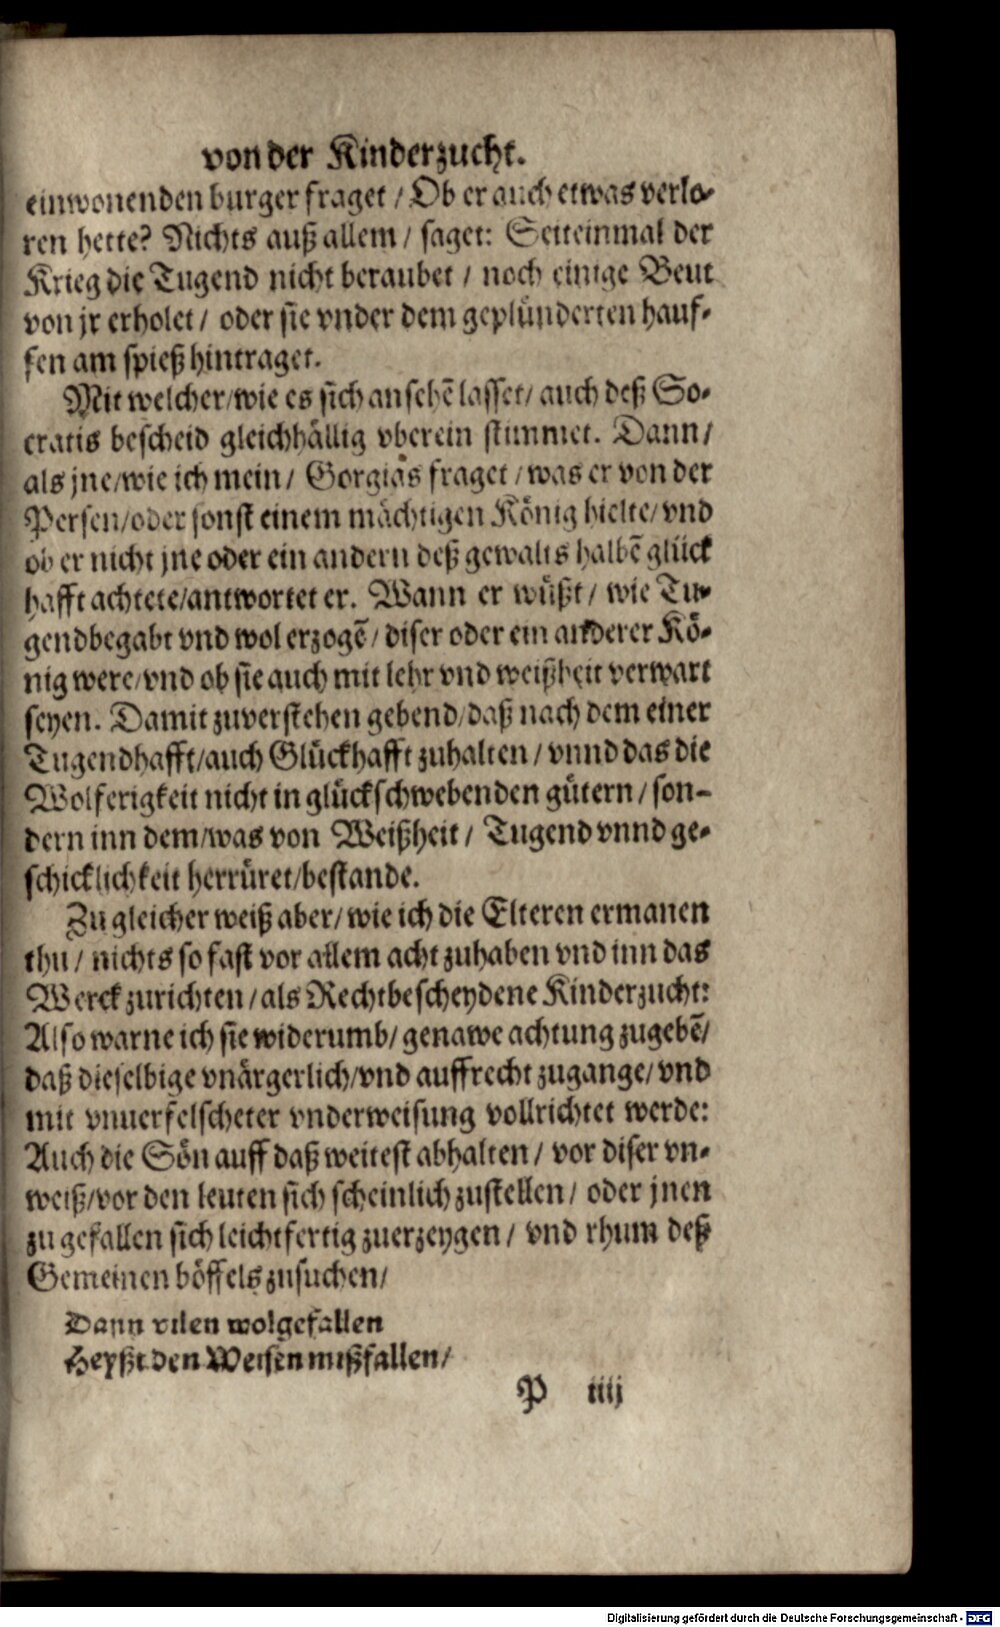 von der Kinderzucht.
einwonenden burger fraget / Ob er auch etwas verlo-
ren hette? Nichts auß allem / saget: Seiteinmal der
Krieg die Tugend nicht beraubet / noch einige Beut
von jr erholet / oder sie vnder dem geplünderten hauf-
fen am spieß hintraget.
Mit welcher / wie es sich ansehẽ lasset / auch deß So-
cratis bescheid gleichhällig vberein stimmet. Dann /
als jne / wie ich mein / Gorgias fraget / was er von der
Persen / oder sonst einem mächtigen König hielte / vnd
ob er nicht jne oder ein andern deß gewalts halbẽ glück
hafft achtete / antwortet er. Wann er wüßt / wie Tu-
gendbegabt vnd wol erzogẽ / diser oder ein anderer Kö-
nig were / vnd ob sie auch mit lehr vnd weißheit verwart
seyen. Damit zuverstehen gebend / daß nach dem einer
Tugendhafft / auch Glückhafft zuhalten / vnnd das die
Wolferigkeit nicht in glückschwebenden gütern / son-
dern inn dem / was von Weißheit / Tugend vnnd ge-
schicklichkeit herrüret / bestande.
Zu gleicher weiß aber / wie ich die Elteren ermanen
thu / nichts so fast vor allem acht zuhaben vnd inn das
Werck zurichten / als Rechtbescheydene Kinderzucht:
Also warne ich sie widerumb / genawe achtung zugebẽ /
daß dieselbige vnärgerlich / vnd auffrecht zugange / vnd
mit vnuerfelscheter vnderweisung vollrichtet werde:
Auch die Sön auff daß weitest abhalten / vor diser vn-
weiß / vor den leuten sich scheinlich zustellen / oder jnen
zu gefallen sich leichtfertig zuerzeygen / vnd rhum deß
Gemeinen böffels zusuchen /
Dann vilen wolgefallen
Heyßt den Weisen mißfallen /
P iiij
Digitalisierung gefördert durch die Deutsche Forschungsgemeinschaft - DFG